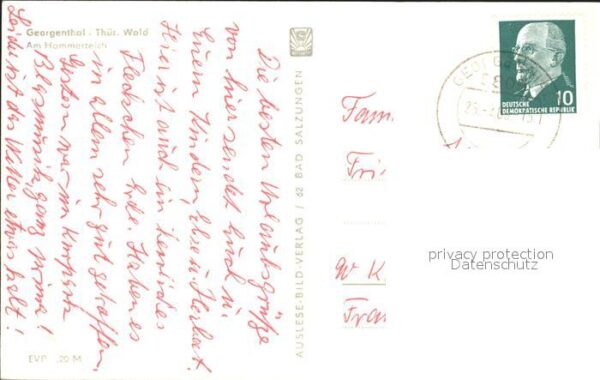 Georgenthal - Thür. Wald
Am Hammerteich
Die besten Urlaubsgrüße
von hier sendet Euch u.
Euern Kindern Ilse u. Herbert.
Hier ist auch ein herrliches
Fleckchen Erde. Haben es
in allem sehr gut getroffen.
Gestern war im Kurpark
Blasmusik, ganz prima!
Leider ist das Wetter etwas kalt!
EVP .20 M
AUSLESE-BILD-VERLAG / 62 BAD SALZUNGEN
DEUTSCHE
DEMOKRATISCHE REPUBLIK
10
Fam.
W K
privacy protection
Datenschutz